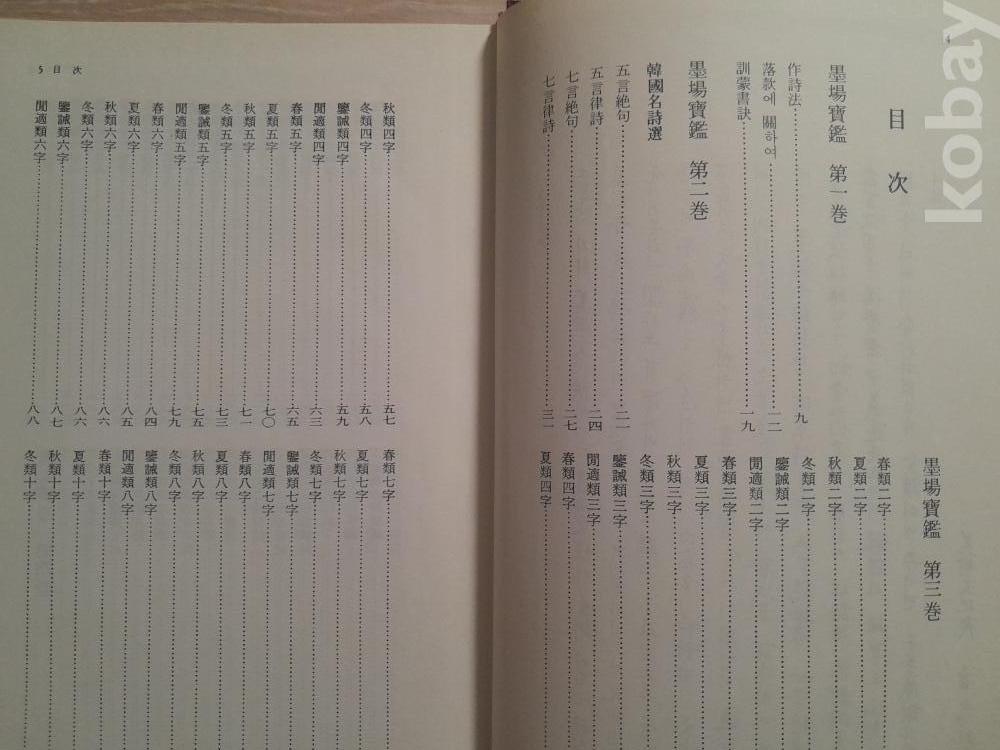 4
目 次
墨場寶鑑 第一巻
作詩法 九
落款에 關하여 一二
訓蒙書訣 一九
墨場寶鑑 第二巻
韓國名詩選
五言絶句 二一
五言律詩 二四
七言絶句 二七
七言律詩 三一
墨場寶鑑 第三巻
春類二字
夏類二字
秋類二字
冬類二字
鑒誡類二字
閒適類二字
春類三字
夏類三字
秋類三字
冬類三字
鑒誡類三字
閒適類三字
春類四字
夏類四字
5 目 次
秋類四字 五七
冬類四字 五八
鑒誡類四字 五九
閒適類四字 六三
春類五字 六五
夏類五字 七〇
秋類五字 七一
冬類五字 七三
鑒誡類五字 七五
閒適類五字 七九
春類六字 八四
夏類六字 八五
秋類六字 八六
冬類六字 八六
鑒誡類六字 八七
閒適類六字 八八
春類七字
夏類七字
秋類七字
冬類七字
鑒誡類七字
閒適類七字
春類八字
夏類八字
秋類八字
冬類八字
鑒誡類八字
閒適類八字
春類十字
夏類十字
秋類十字
冬類十字
kobay